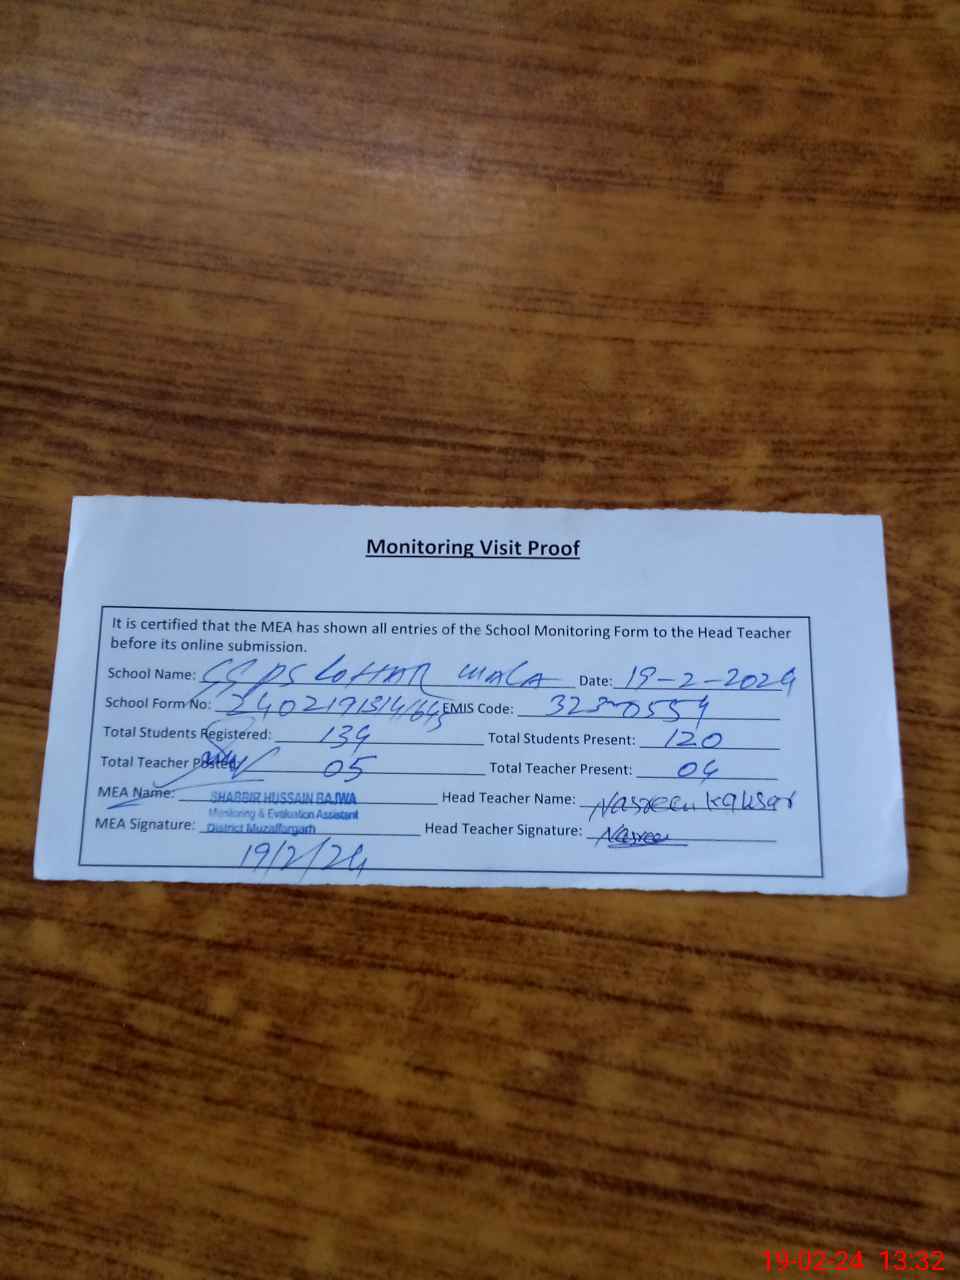 Monitoring Visit Proof
It is certified that the MEA has shown all entries of the School Monitoring Form to the Head Teacher
before its online submission.
School Name: GGPS LOHAR WALA Date: 19-2-2024
School Form No: EMIS Code:
Total Students Registered: 134 Total Students Present: 120
Total Teacher Posted: 05 Total Teacher Present: 04
MEA Name: SHABBIR HUSSAIN BAJWA Head Teacher Name: Nasreen Kausar
Monitoring & Evaluation Assistant
MEA Signature: District Muzaffargarh Head Teacher Signature: Nasreen
19/2/24
19-02-24 13:32